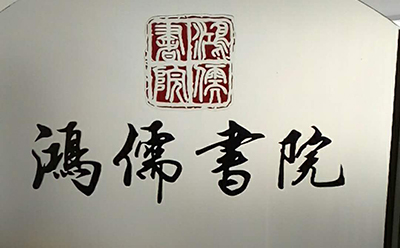 鴻儒
書院
鴻儒書院